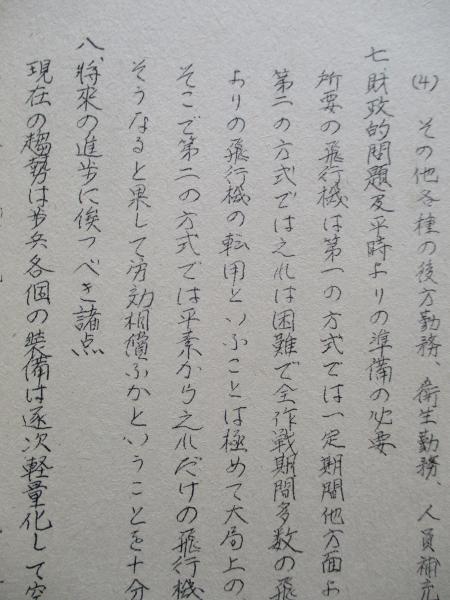 (4) その他各種の後方勤務、衛生勤務、人員補充
七 財政的問題及平時よりの準備の必要
所要の飛行機は第一の方式では一定期間他方面よ
第二の方式では之れは困難で全作戦期間多数の飛
よりの飛行機の転用といふことは極めて大局上の
そこで第二の方式では平素から之れだけの飛行機
そうなると果して労効相償ふかということを十分
八、将来の進歩に俟つべき諸点
現在の趨勢は歩兵各個の装備は逐次軽量化して空